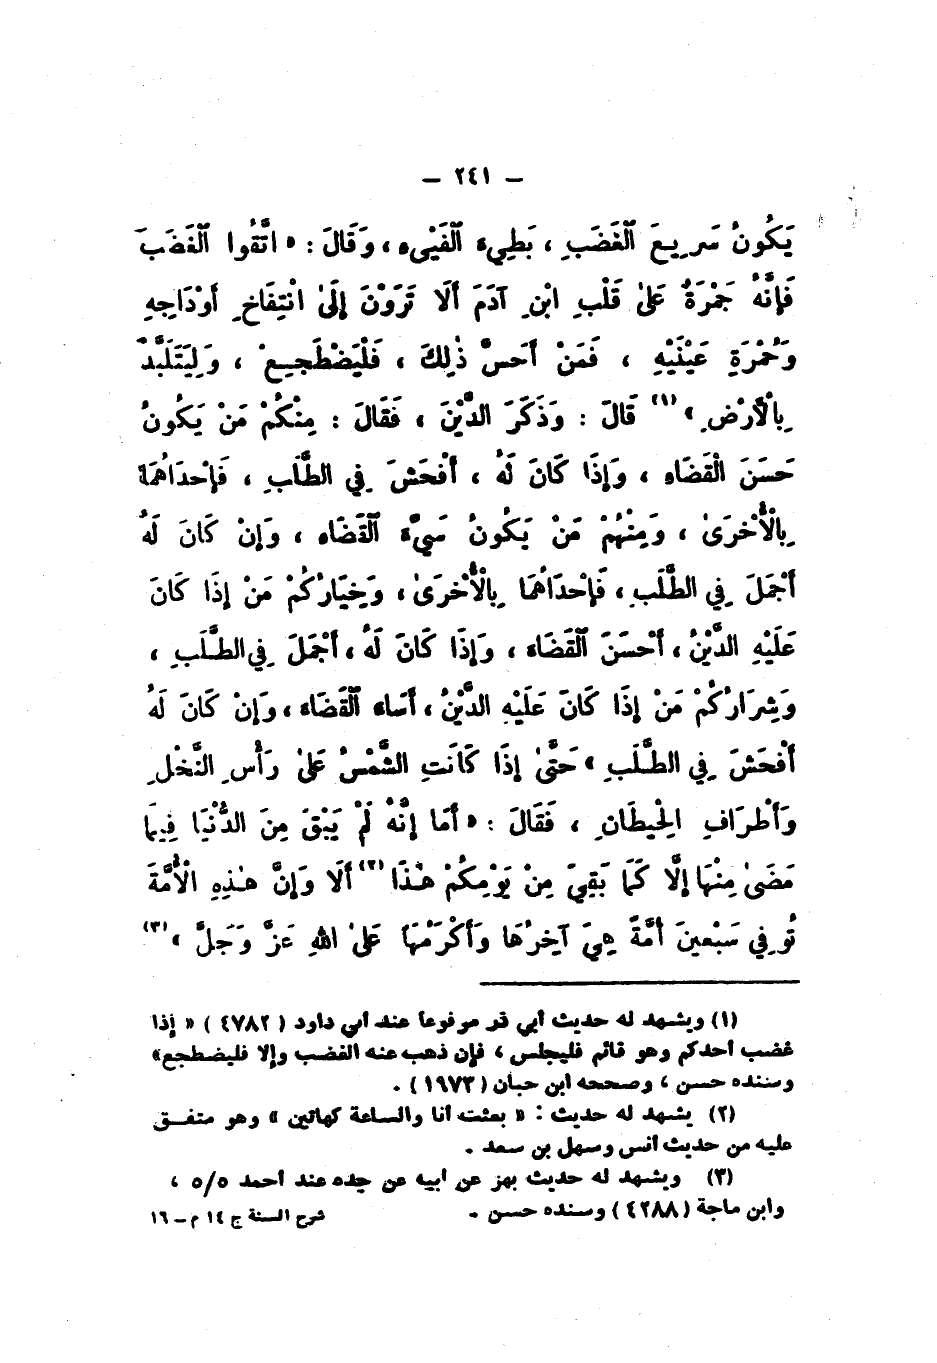 – ٢٤١ –
يَكُونُ سَرِيعَ الْغَضَبِ ، بَطِيءَ الْفَيْءِ ، وَقَالَ : « اتَّقُوا الْغَضَبَ
فَإِنَّهُ جَمْرَةٌ عَلىٰ قَلْبِ ابْنِ آدَمَ أَلَا تَرَوْنَ إِلىٰ انْتِفَاخِ أَوْدَاجِهِ
وَحُمْرَةِ عَيْنَيْهِ ، فَمَنْ أَحَسَّ ذٰلِكَ ، فَلْيَضْطَجِعْ ، وَلِيَتَلَبَّدْ
بِالْأَرْضِ » (١) قَالَ : وَذَكَرَ الدَّيْنَ ، فَقَالَ : مِنْكُمْ مَنْ يَكُونُ
حَسَنَ الْقَضَاءِ ، وَإِذَا كَانَ لَهُ ، أَفْحَشَ فِي الطَّلَبِ ، فَإِحْدَاهُمَا
بِالْأُخْرَىٰ ، وَمِنْهُمْ مَنْ يَكُونُ سَيِّءَ الْقَضَاءِ ، وَإِنْ كَانَ لَهُ
أَجْمَلَ فِي الطَّلَبِ ، فَإِحْدَاهُمَا بِالْأُخْرَىٰ ، وَخِيَارُكُمْ مَنْ إِذَا كَانَ
عَلَيْهِ الدَّيْنُ ، أَحْسَنَ الْقَضَاءَ ، وَإِذَا كَانَ لَهُ ، أَجْمَلَ فِي الطَّلَبِ ،
وَشِرَارُكُمْ مَنْ إِذَا كَانَ عَلَيْهِ الدَّيْنُ ، أَسَاءَ الْقَضَاءَ ، وَإِنْ كَانَ لَهُ
أَفْحَشَ فِي الطَّلَبِ » حَتَّىٰ إِذَا كَانَتِ الشَّمْسُ عَلىٰ رَأْسِ النَّخْلِ
وَأَطْرَافِ الْحِيطَانِ ، فَقَالَ : « أَمَا إِنَّهُ لَمْ يَبْقَ مِنَ الدُّنْيَا فِيمَا
مَضَىٰ مِنْهَا إِلَّا كَمَا بَقِيَ مِنْ يَوْمِكُمْ هٰذَا (٢) أَلَا وَإِنَّ هٰذِهِ الْأُمَّةَ
تُوفِي سَبْعِينَ أُمَّةً هِيَ آخِرُهَا وَأَكْرَمُهَا عَلىٰ اللهِ عَزَّ وَجَلَّ » (٣)
(١) ويشهد له حديث أبي ذر مرفوعاً عند أبي داود ( ٤٧٨٢ ) « إذا
غضب أحدكم وهو قائم فليجلس ، فإن ذهب عنه الغضب وإلا فليضطجع»
وسنده حسن ، وصححه ابن حبان ( ١٩٧٣ ) .
(٢) يشهد له حديث : « بعثت أنا والساعة كهاتين » وهو متفق
عليه من حديث أنس وسهل بن سعد .
(٣) ويشهد له حديث بهز عن أبيه عن جده عند أحمد ٥/٥ ،
وابن ماجة ( ٤٢٨٨ ) وسنده حسن .
شرح السنة ج ١٤ م – ١٦